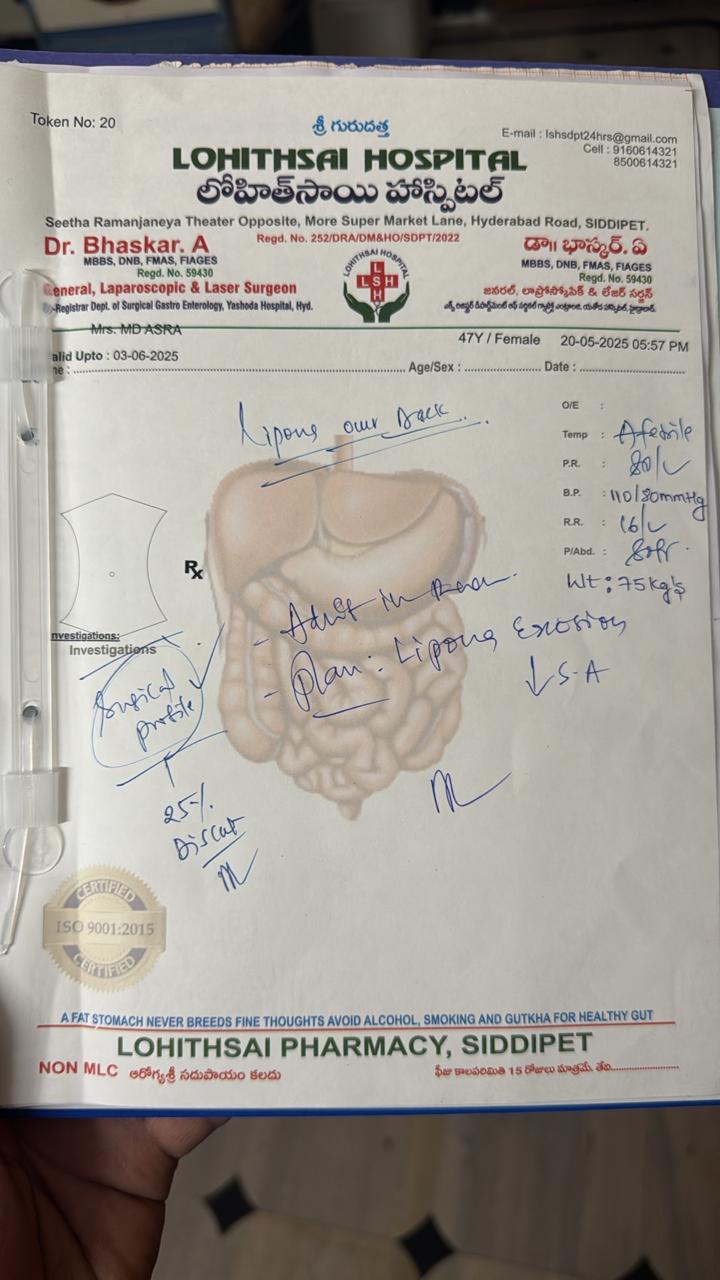 Token No: 20
శ్రీ గురుదత్త
E-mail : lshsdpt24hrs@gmail.com
Cell : 9160614321
8500614321
LOHITHSAI HOSPITAL
లోహిత్‌సాయి హాస్పిటల్
Seetha Ramanjaneya Theater Opposite, More Super Market Lane, Hyderabad Road, SIDDIPET.
Dr. Bhaskar. A
Regd. No. 252/DRA/DM&HO/SDPT/2022
డా॥ భాస్కర్. ఏ
MBBS, DNB, FMAS, FIAGES
Regd. No. 59430
MBBS, DNB, FMAS, FIAGES
Regd. No. 59430
General, Laparoscopic & Laser Surgeon
జనరల్, లాప్రోస్కోపిక్ & లేజర్ సర్జన్
-Registrar Dept. of Surgical Gastro Enterology, Yashoda Hospital, Hyd.
LOHITHSAI HOSPITAL
LSH
Mrs. MD ASRA
47Y / Female 20-05-2025 05:57 PM
alid Upto : 03-06-2025
Age/Sex : Date :
Lipoma over Back
O/E :
Temp : Afebrile
P.R. : 80/
B.P. : 110/80mmHg
R.R. : 16/
P/Abd. : Soft
Wt : 75kg's
Rx
- Admit in
- Plan: Lipoma Excision
↓ S.A
nvestigations:
Investigations
Surgical
profile
25%
Discout
CERTIFIED
ISO 9001:2015
CERTIFIED
A FAT STOMACH NEVER BREEDS FINE THOUGHTS AVOID ALCOHOL, SMOKING AND GUTKHA FOR HEALTHY GUT
LOHITHSAI PHARMACY, SIDDIPET
NON MLC ఆరోగ్యశ్రీ సదుపాయం కలదు
ఫీజు కాలపరిమితి 15 రోజులు మాత్రమే. తేది